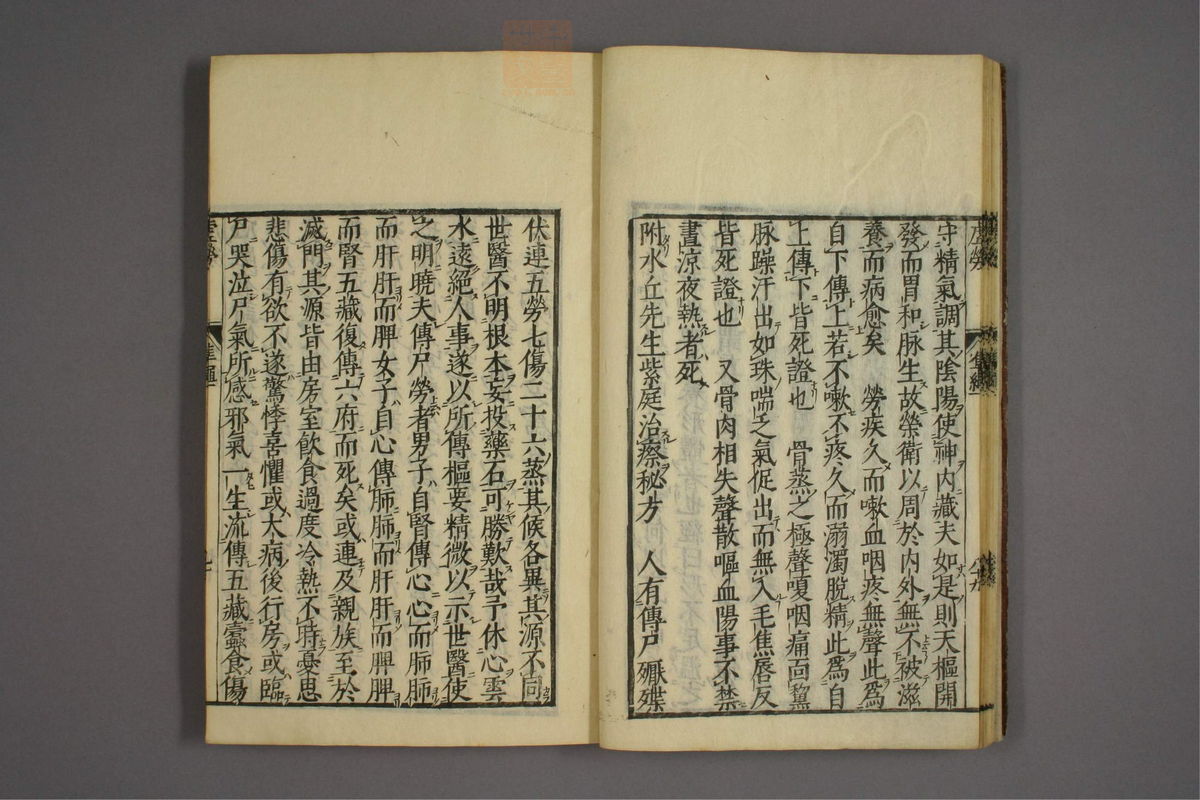 守精氣調其陰陽使神内藏夫如是則天樞開
發而胃和脉生故榮衛以周於内外無不被滋
養而病愈矣　勞疾久而嗽血咽疼無聲此爲
自下傳上若不嗽不疼久而溺濁脫精此爲自
上傳下皆死證也　骨蒸之極聲嗄咽痛面黧
脉躁汗出如珠喘乏氣促出而無入毛焦唇反
皆死證也　又骨肉相失聲散嘔血陽事不禁
晝涼夜熱者死
附水丘先生紫庭治瘵秘方　人有傳尸殗殜
伏連五勞七傷二十六蒸其候各異其源不同
世醫不明根本妄投藥石可勝歎哉予休心雲
水遠絕人事遂以所傳樞要精微以示世醫使
之明曉夫傳尸勞者男子自腎傳心心而肺肺
而肝肝而脾女子自心傳肺肺而肝肝而脾脾
而腎五藏復傳六府而死矣或連及親族至於
滅門其源皆由房室飲食過度冷熱不時憂思
悲傷有欲不遂驚悸喜懼或大病後行房或臨
尸哭泣尸氣所感邪氣一生流傳五藏蠹食傷